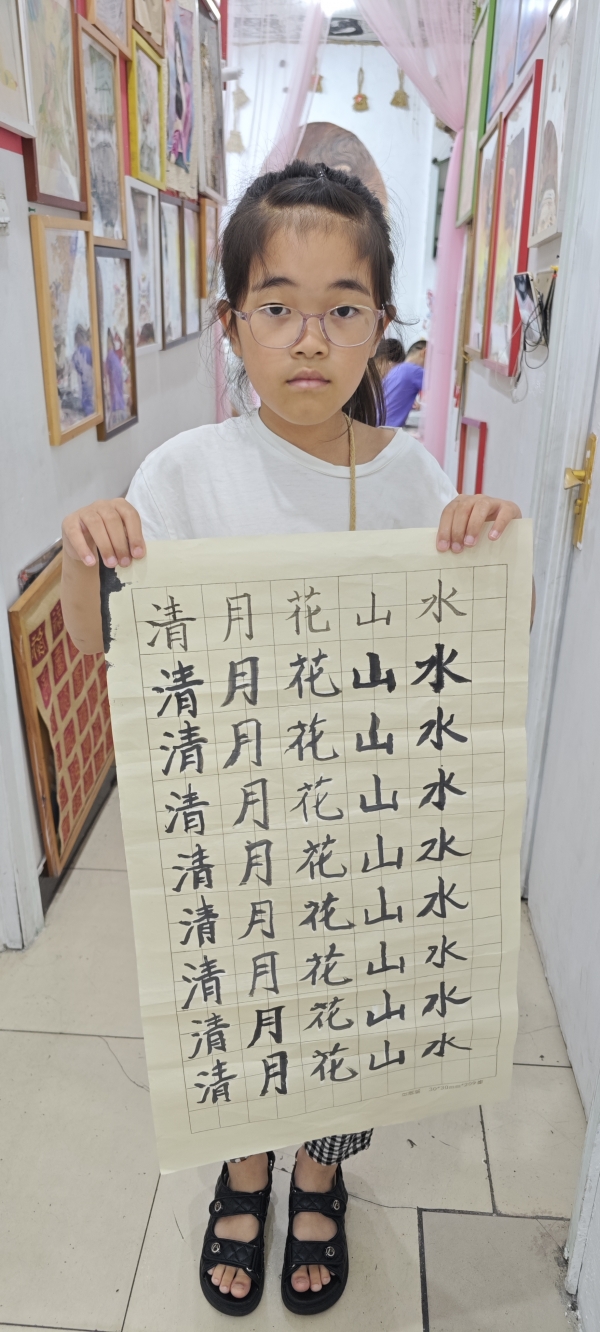 水水水水水水水水水
山山山山山山山山山
花花花花花花花花花
月月月月月月月月月
清清清清清清清清清